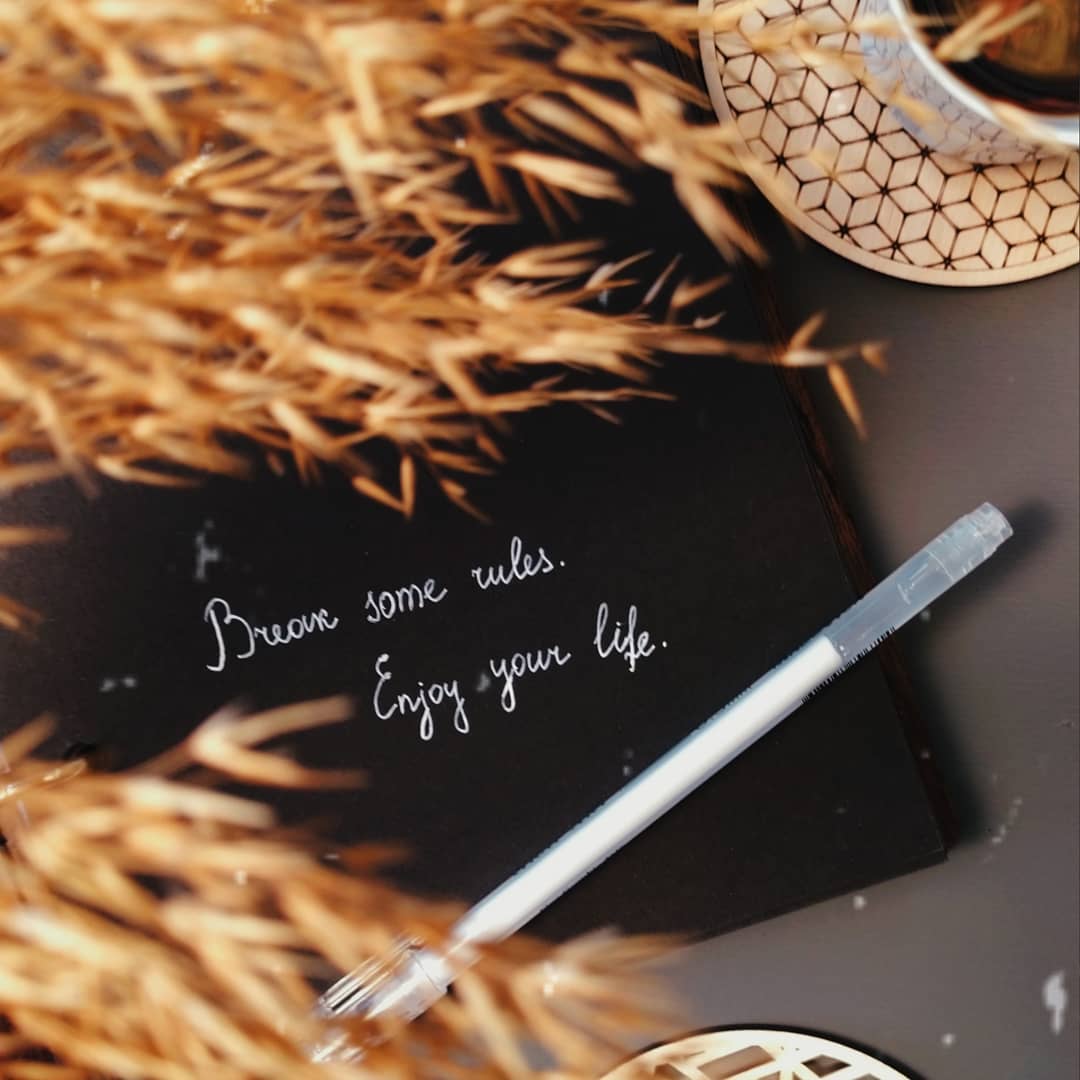 Break some rules.
Enjoy your life.